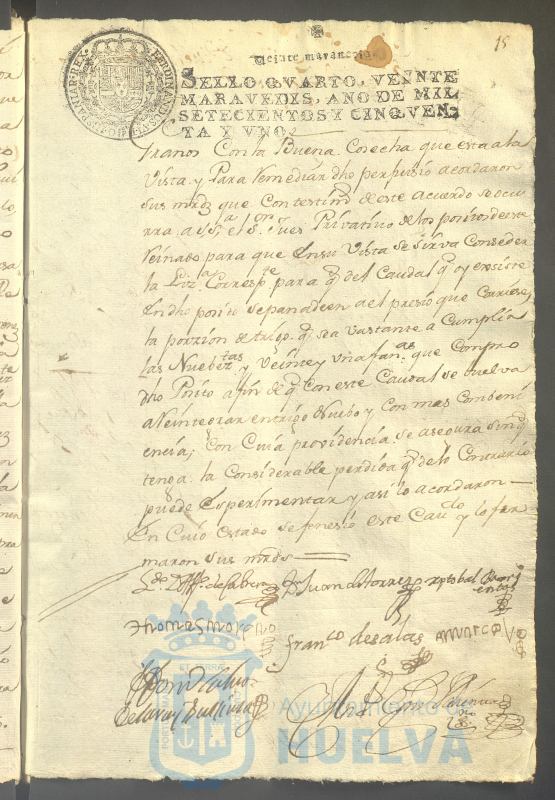 15
Veinte maravedis
SELLO QVARTO, VEINTE
MARAVEDIS, AÑO DE MIL
SETECIENTOS Y CINQVEN-
TA Y VNO.
Con la Buena Cosecha que esta a la
Vista y Para Remediar dho perjuisio acordaron
sus mrds que Con testimo de este acuerdo se ocu
rra a el Sor Jues Privativo de los positos de este
Reinado para que en su Vista se sirva Conseder
la para q del Caudal q oy existe
en dho posito se panadeen a el presio que Corriese,
la porzion de trigo q sea vastante a Cumplir
las Nuebeztas y Veinte y Una fans que Compro
dho Posito a fin de q Con este Caudal se buelva
a Reintegrar en trigo Nuebo y Con mas Combeni
encia; Con Cuia providencia se asegura sin q
tenga la Considerable perdida q de lo Contrario
puede esperimentar y asi lo acordaron
En Cuio estado se fenesio este Cavdo y lo fir
maron sus mrds
Juan de torres xptobal
Thomas Moreno
franco de salas
Ayuntamiento de
HUELVA